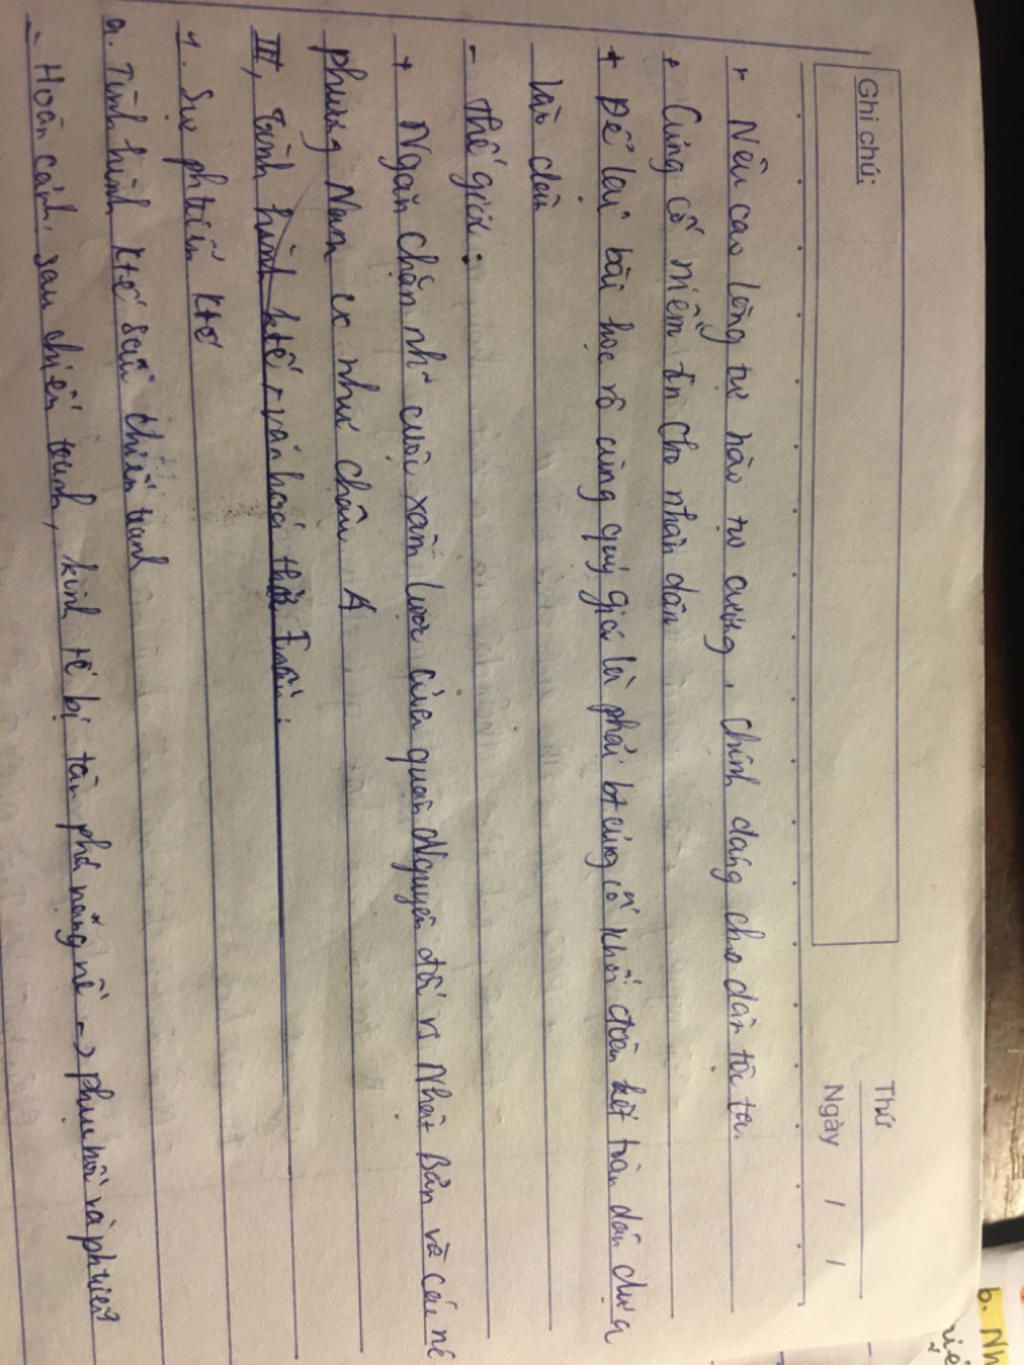 Ghi chú:
Thứ
Ngày / /
+ Nêu cao lòng tự hào tự cường, chính đáng cho dân tộc ta.
+ Củng cố niềm tin cho nhân dân
+ Để lại bài học vô cùng quý giá là phải bt củng cố khối đoàn kết toàn dân dựa
vào dân
- Thế giới:
+ Ngăn chặn nh~ cuộc xâm lược của quân Nguyên đối vs Nhật Bản và các nc
phương Nam cx như châu Á
III, Tình hình ktế, văn hoá thời Trần:
1. Sự phtriển ktế
a. Tình hình ktế sau chiến tranh
- Hoàn cảnh: sau chiến tranh, kinh tế bị tàn phá nặng nề -> phục hồi và phtriển
b. Nh